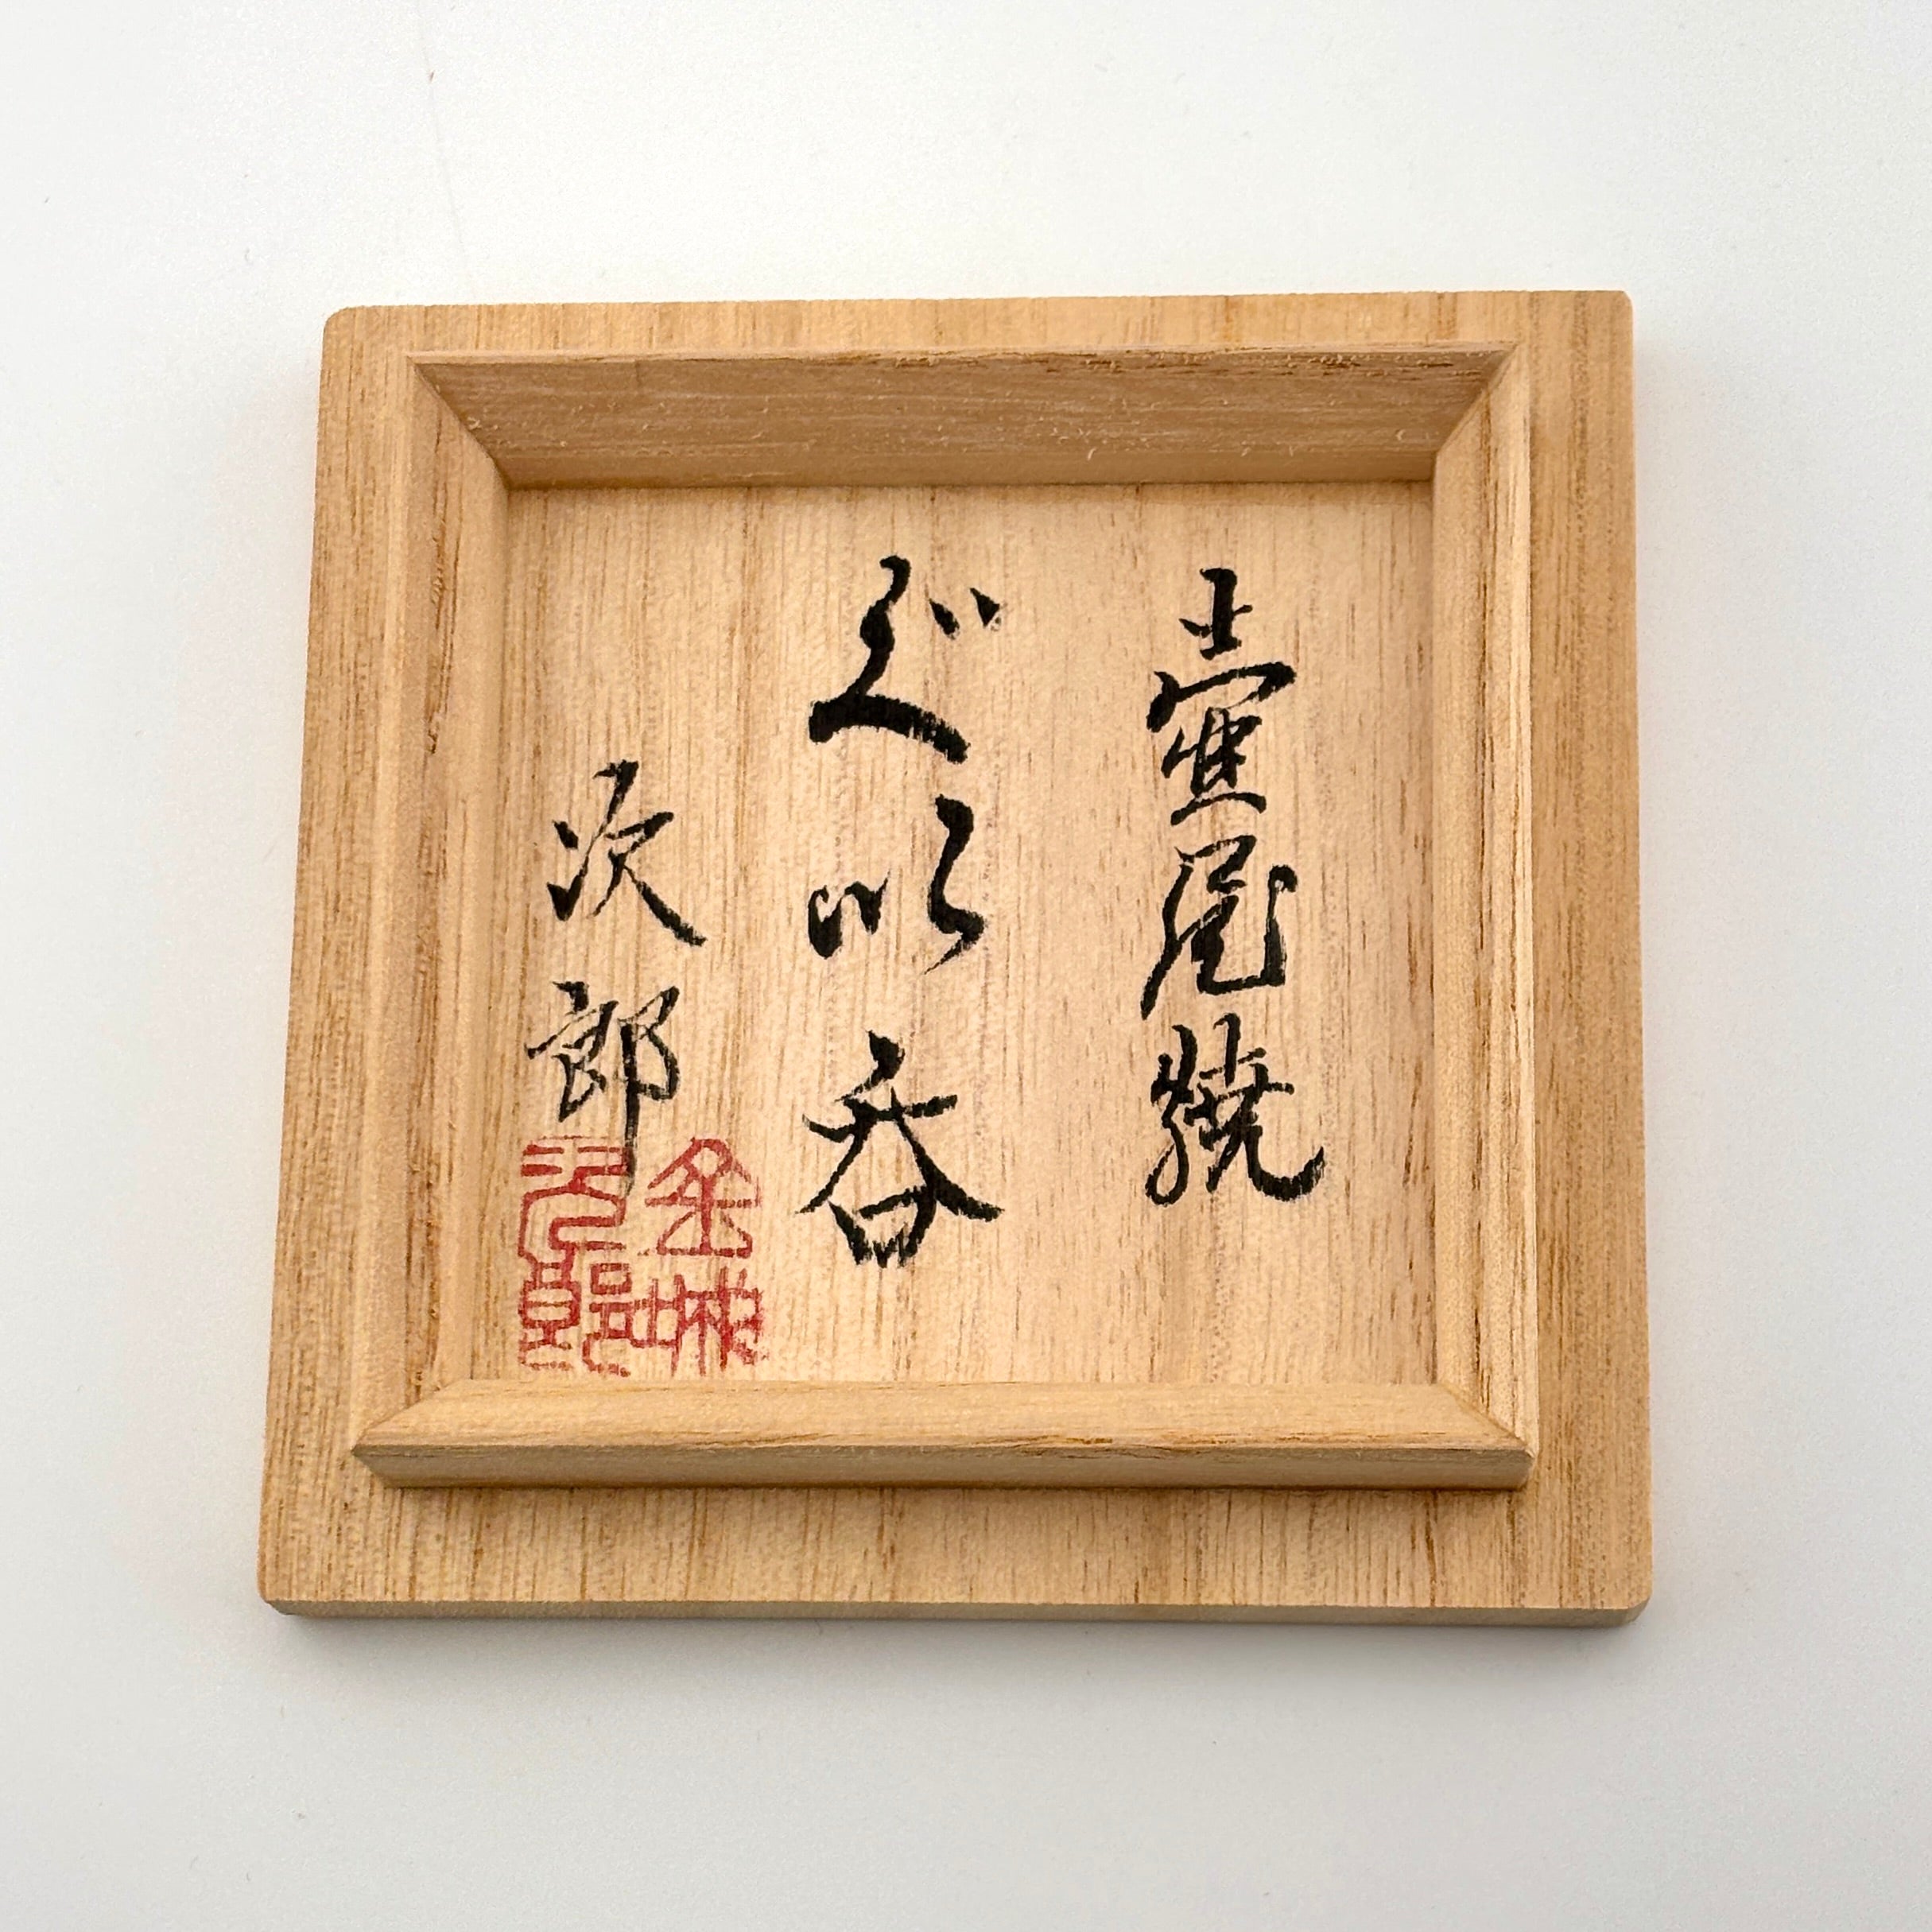 壷屋焼
ぐい呑
次郎
金城
次郎